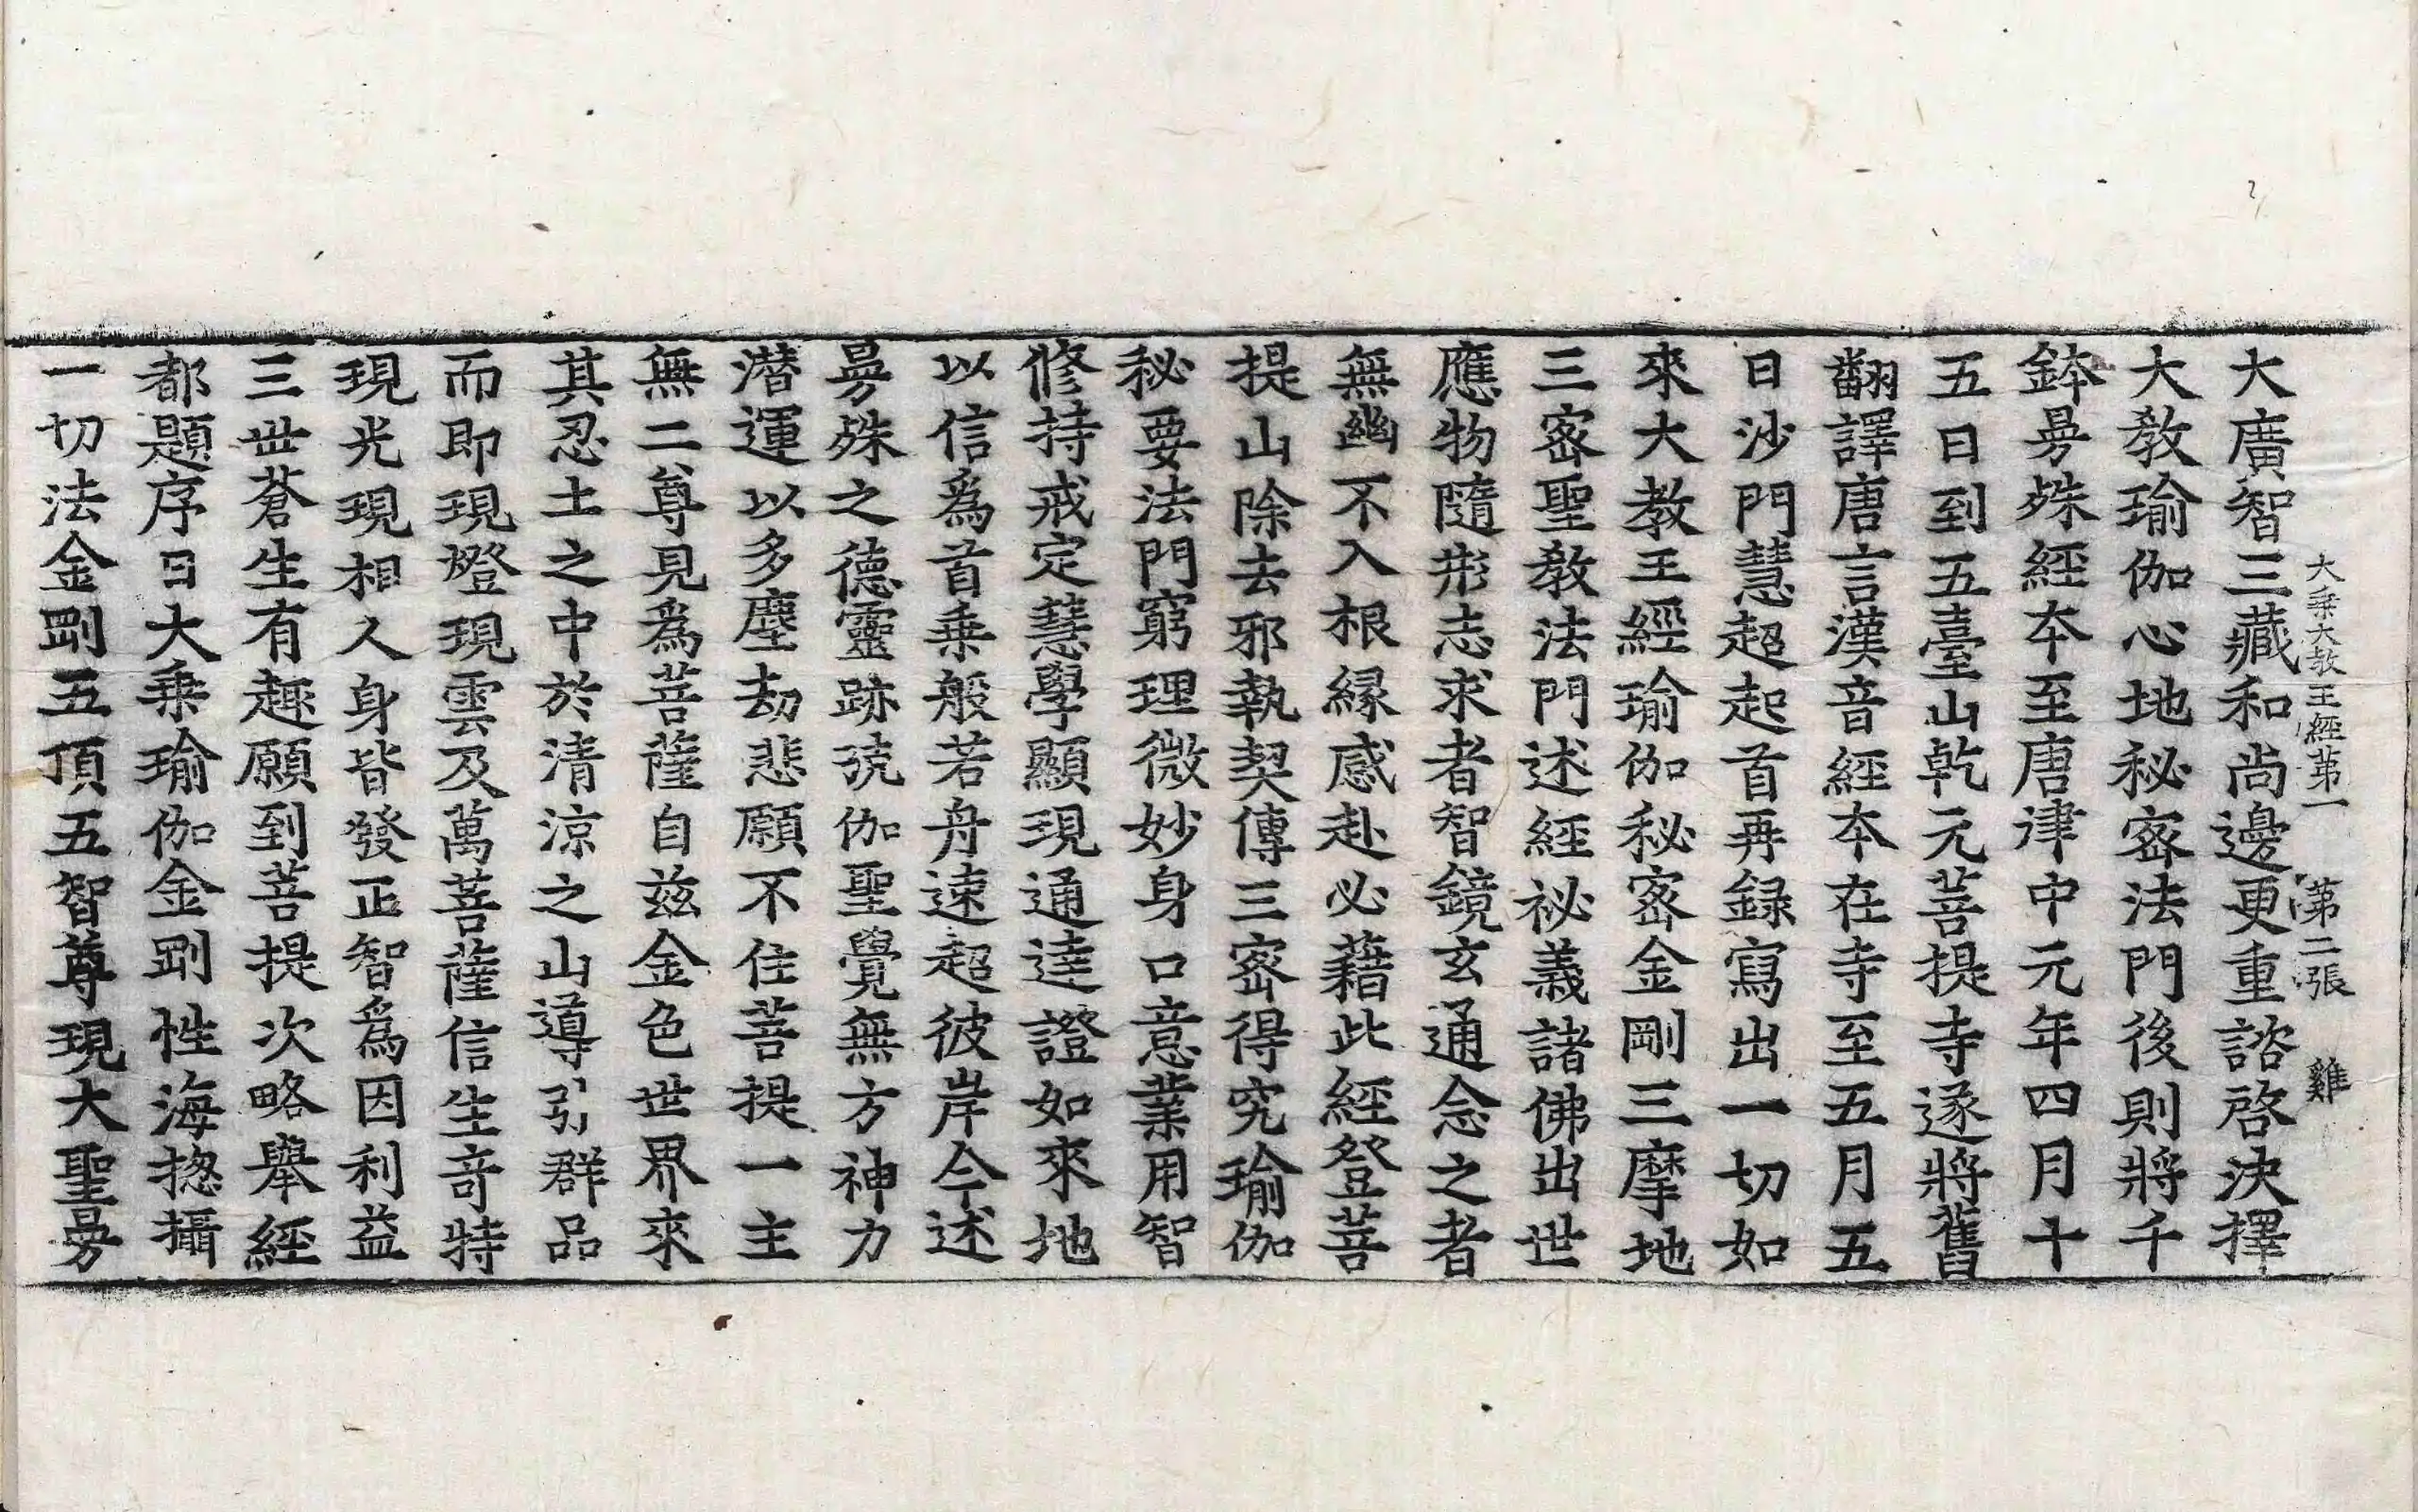 大乗大教王經第一 第二張 雞
大廣智三藏和尚邊更重諮啓決擇
大教瑜伽心地秘宻法門後則將千
鉢曼殊經夲至唐津中元年四月十
五日到五臺山乹元菩提寺遂將舊
翻譯唐言漢音經夲在寺至五月五
日沙門慧超起首再録寫出一切如
來大教王經瑜伽秘宻金剛三摩地
三宻聖教法門述經祕義諸佛出世
應物隨形志求者智鏡玄通念之者
無幽不入根縁感赴必藉此經登菩
提山除去邪執契傳三宻得究瑜伽
秘要法門窮理微妙身口意業用智
修持戒定慧學顯現通達證如來地
以信爲首乗般若舟速超彼岸今述
曼殊之德靈跡號伽聖覺無方神力
潜運以多塵劫悲願不住菩提一主
無二尊見爲菩薩自兹金色世界來
其忍土之中於清涼之山導引群品
而即現燈現雲及萬菩薩信生竒特
現光現相人身皆發正智爲因利益
三世蒼生有趣願到菩提次略舉經
都題序曰大乗瑜伽金剛性海揔攝
一切法金剛五頂五智尊現大聖曼